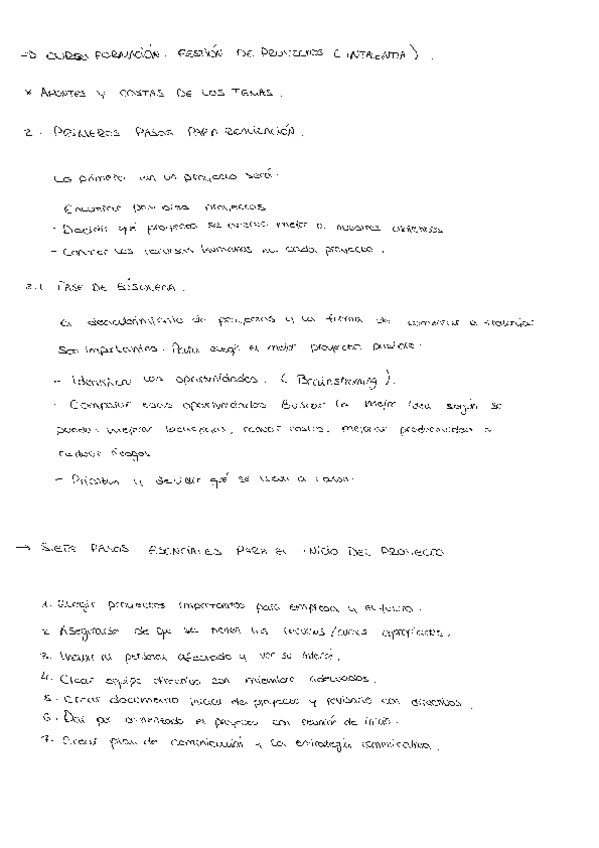 → CURSO FORMACIÓN: GESTIÓN DE PROYECTOS ( ).
* APUNTES Y COSTAS DE LOS TEMAS.
2. PRIMEROS PASOS PARA REALIZACIÓN.
Lo primero en un proyecto será:
Encontrar proyectos
- Decidir qué proyectos se mejor a nuestros
- Conocer los recursos humanos de cada proyecto.
2.1 FASE DE BÚSQUEDA.
El descubrimiento de proyectos y la forma de comenzar a trabajar
son importantes. Para elegir el mejor proyecto posible:
- Identificar las oportunidades. (Brainstorming).
- Comparar esas oportunidades. Buscar la mejor idea según se
puede: mejorar beneficios, reducir costos, mejorar productividad o
reducir riesgos
- Priorizar y decidir qué se lleva a cabo.
→ SIETE PASOS ESENCIALES PARA EL INICIO DEL PROYECTO
1. Elegir proyectos importantes para empresa y el futuro.
2. Asegurarse de que se tienen los recursos / apropiados.
3. Incluir al personal afectado y ver su interés.
4. Crear equipo directivo con miembros adecuados.
5. Crear documento inicial de proyectos y revisarlo con directivos.
6. Dar por comenzado el proyecto con reunión de inicio.
7. Crear plan de comunicación y la estrategia comunicativa.